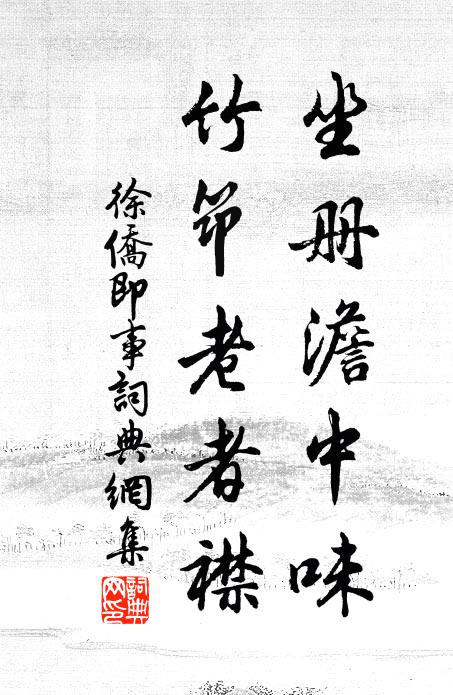 坐冊澹中味
竹節老者襟
徐僑即事詞典網集
詞典网印